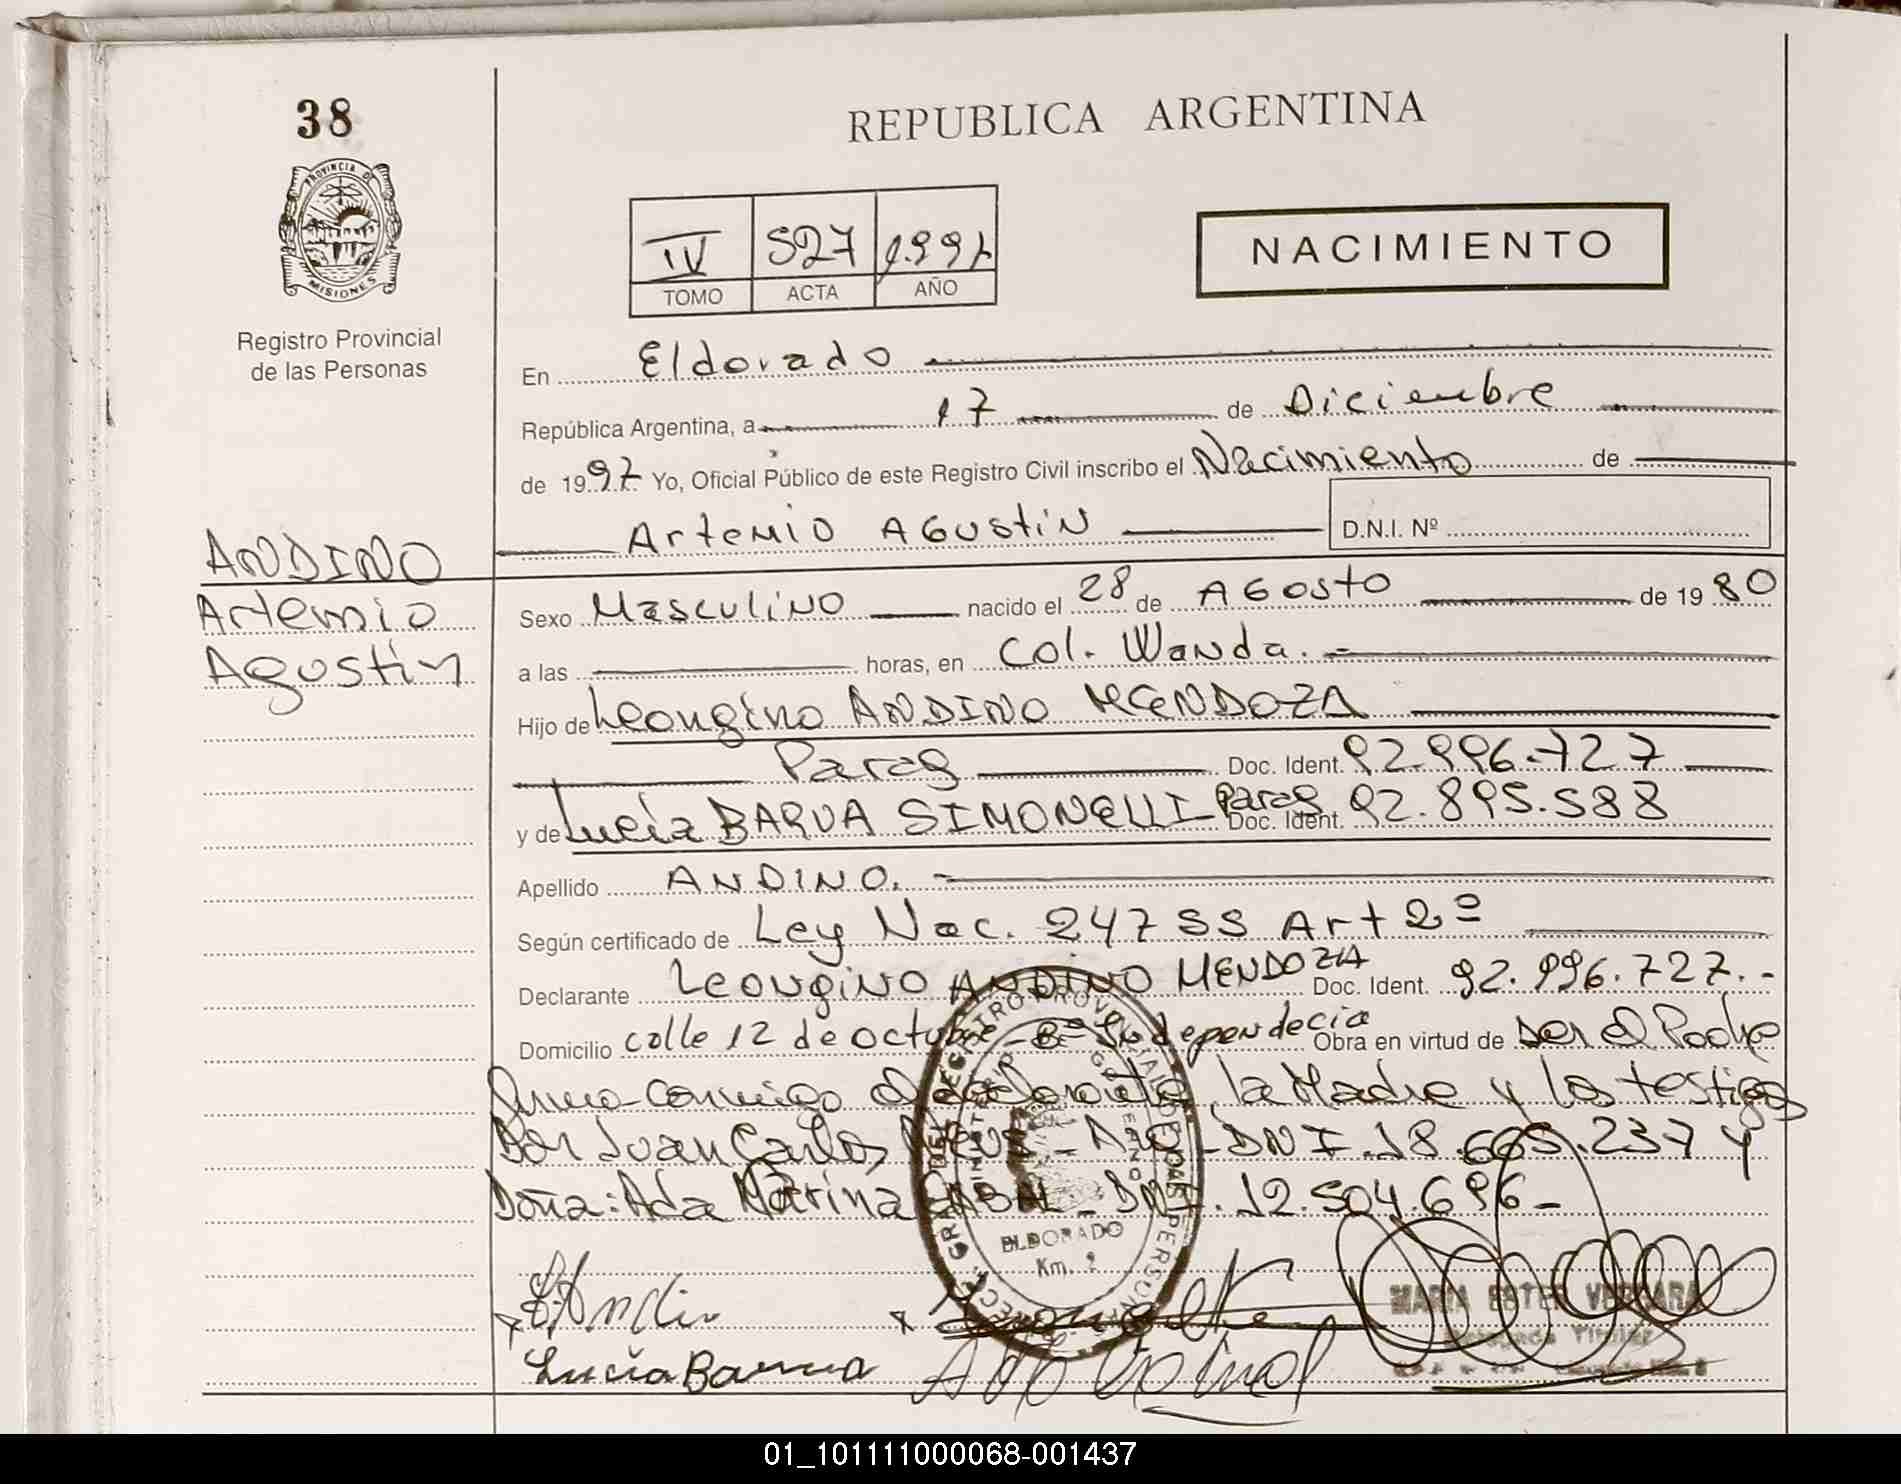 38
PROVINCIA DE
MISIONES
Registro Provincial
de las Personas
ANDINO
Artemio
Agustin
REPUBLICA ARGENTINA
IV 527 1.997
TOMO ACTA AÑO
NACIMIENTO
En Eldorado
República Argentina, a 17 de Diciembre
de 1997 Yo, Oficial Público de este Registro Civil inscribo el Nacimiento de
Artemio Agustin D.N.I. Nº
Sexo Masculino nacido el 28 de Agosto de 1980
a las horas, en Col. Wanda.
Hijo de Leongino ANDINO MENDOZA
Parag Doc. Ident. 92.996.727
y de Lucía BARUA SIMONELLI Parag Doc. Ident. 92.895.588
Apellido ANDINO.
Según certificado de Ley Nac. 24755 Art 2º
Declarante Leongino ANDINO MENDOZA Doc. Ident. 92.996.727.-
Domicilio calle 12 de Octubre - Bº Independecia Obra en virtud de ser el Padre
firma conmigo el declarante, la Madre y los testigos
Don Juan Carlos DNI. 18.665.237 y
Doña: Ada Marina - DNI. 12.504.696-
ELDORADO
Km. 2
Lucía Barua
MARIA ESTER VERGARA
Delegada Titular
01_101111000068-001437